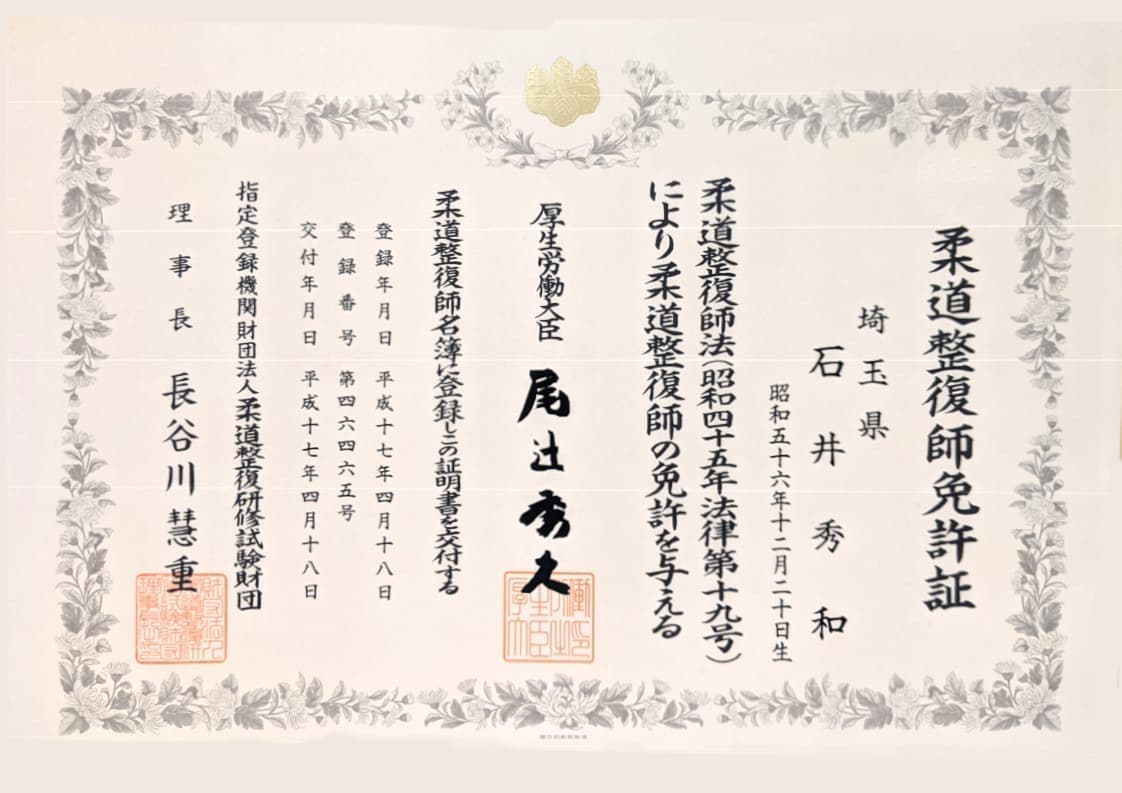 柔道整復師免許証
埼玉県
石井秀和
昭和五十六年十二月二十日生
柔道整復師法(昭和四十五年法律第十九号)
により柔道整復師の免許を与える
厚生労働大臣 尾辻秀久
柔道整復師名簿に登録しこの証明書を交付する
登録年月日 平成十七年四月十八日
登録番号 第四六四六五号
交付年月日 平成十七年四月十八日
指定登録機関財団法人柔道整復研修試験財団
理事長 長谷川慧重